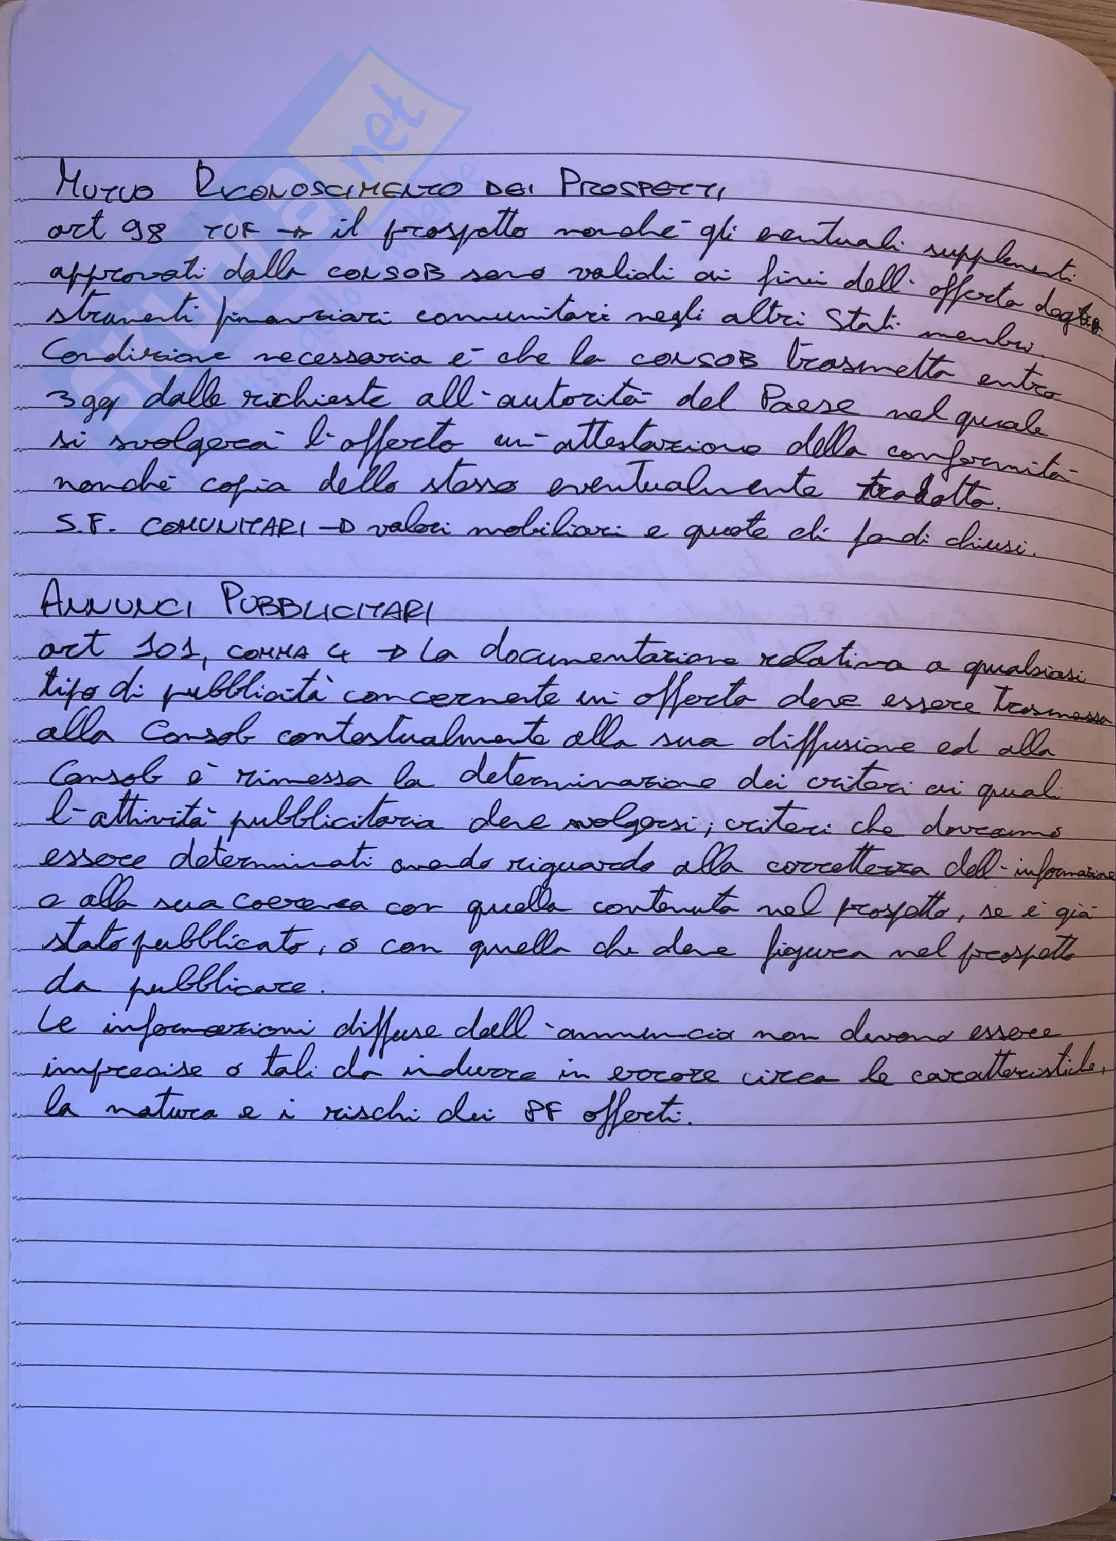 MUTUO RICONOSCIMENTO DEI PROSPETTI
art 98 TUF → il prospetto nonché gli eventuali supplementi
approvati dalla CONSOB sono validi ai fini dell'offerta degli
strumenti finanziari comunitari negli altri Stati membri.
Condizione necessaria è che la CONSOB trasmetta entro
3gg dalla richiesta all'autorità del Paese nel quale
si svolgerà l'offerta un'attestazione della conformità
nonché copia dello stesso eventualmente tradotto.
S.F. COMUNITARI → valori mobiliari e quote di fondi chiusi.
ANNUNCI PUBBLICITARI
art 101, COMMA 4 → La documentazione relativa a qualsiasi
tipo di pubblicità concernente un'offerta deve essere trasmessa
alla Consob contestualmente alla sua diffusione ed alla
Consob è rimessa la determinazione dei criteri ai quali
l'attività pubblicitaria deve svolgersi; criteri che dovranno
essere determinati avendo riguardo alla correttezza dell'informazione
e alla sua coerenza con quella contenuta nel prospetto, se è già
stato pubblicato, o con quella che deve figurare nel prospetto
da pubblicare.
Le informazioni diffuse dall'annuncio non devono essere
imprecise o tali da indurre in errore circa le caratteristiche,
la natura e i rischi dei SF offerti.
SKUOLA.net